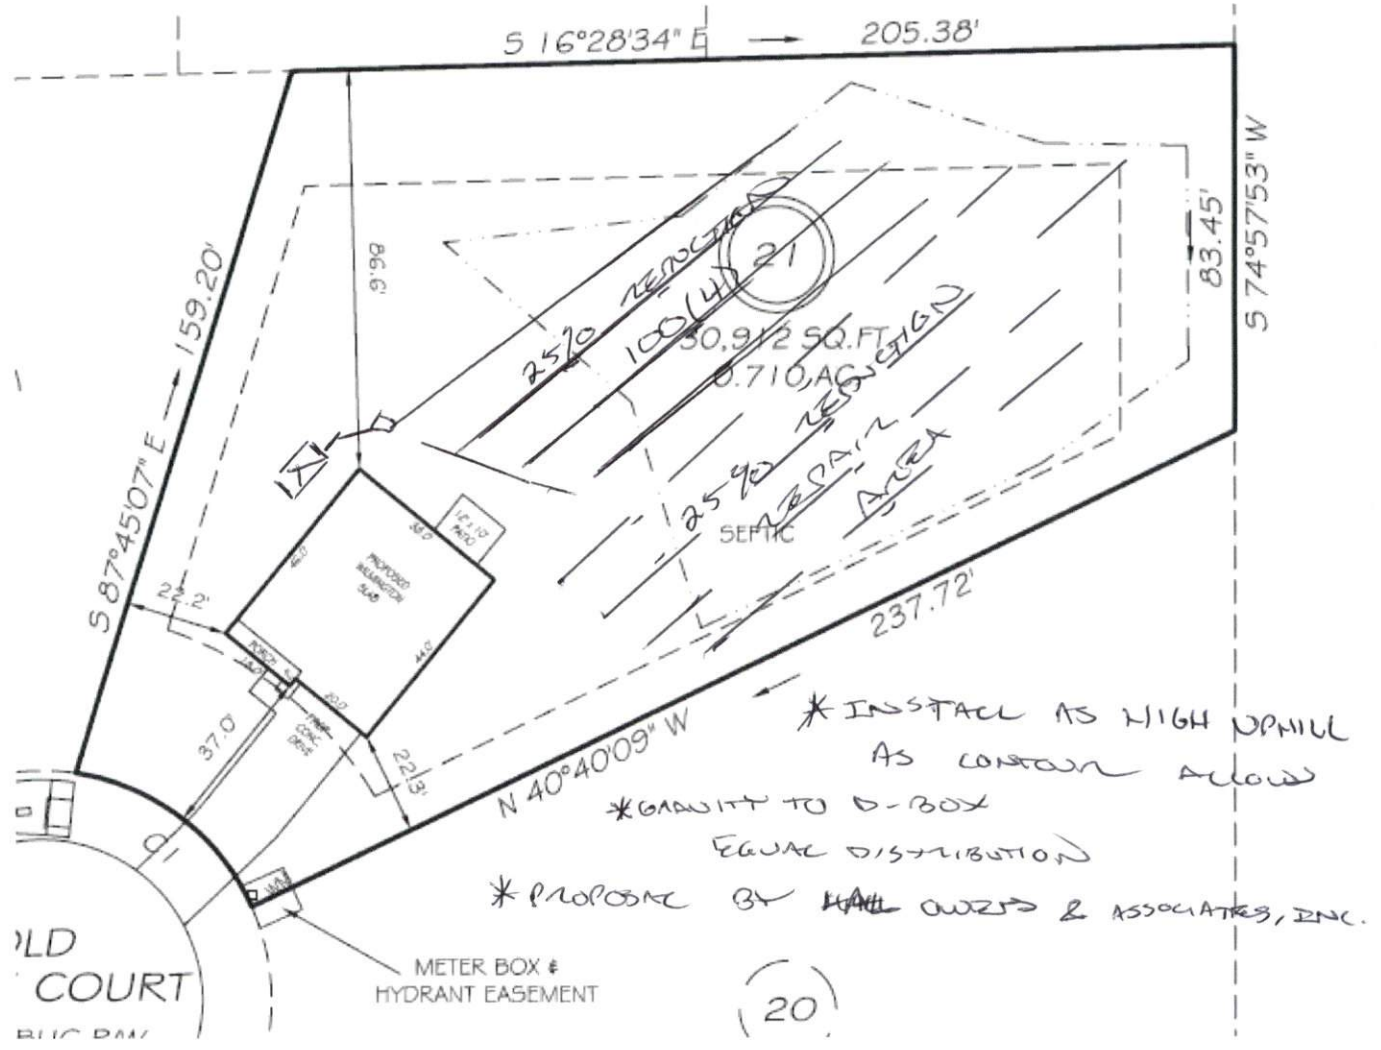 S 16°28'34" E
205.38'
S 74°57'53" W
83.45'
86.6'
S 87°45'07" E
159.20'
25% REDUCTION
100(4)
21
30,912 SQ.FT.
0.710 AC
25% REDUCTION
REPAIR
AREA
SEPTIC
12 x 10
PATIO
38.0
46.0
PROPOSED
WILMINGTON
SLAB
44.0
22.2'
PORCH
18.0
20.0
CONC.
DRIVE
37.0'
22.3'
237.72'
N 40°40'09" W
* INSTALL AS HIGH UPHILL
AS CONTOUR ALLOWS
* GRAVITY TO D-BOX
EQUAL DISTRIBUTION
* PROPOSAL BY HAL OWEN & ASSOCIATES, INC.
WM
OLD
COURT
METER BOX &
HYDRANT EASEMENT
20